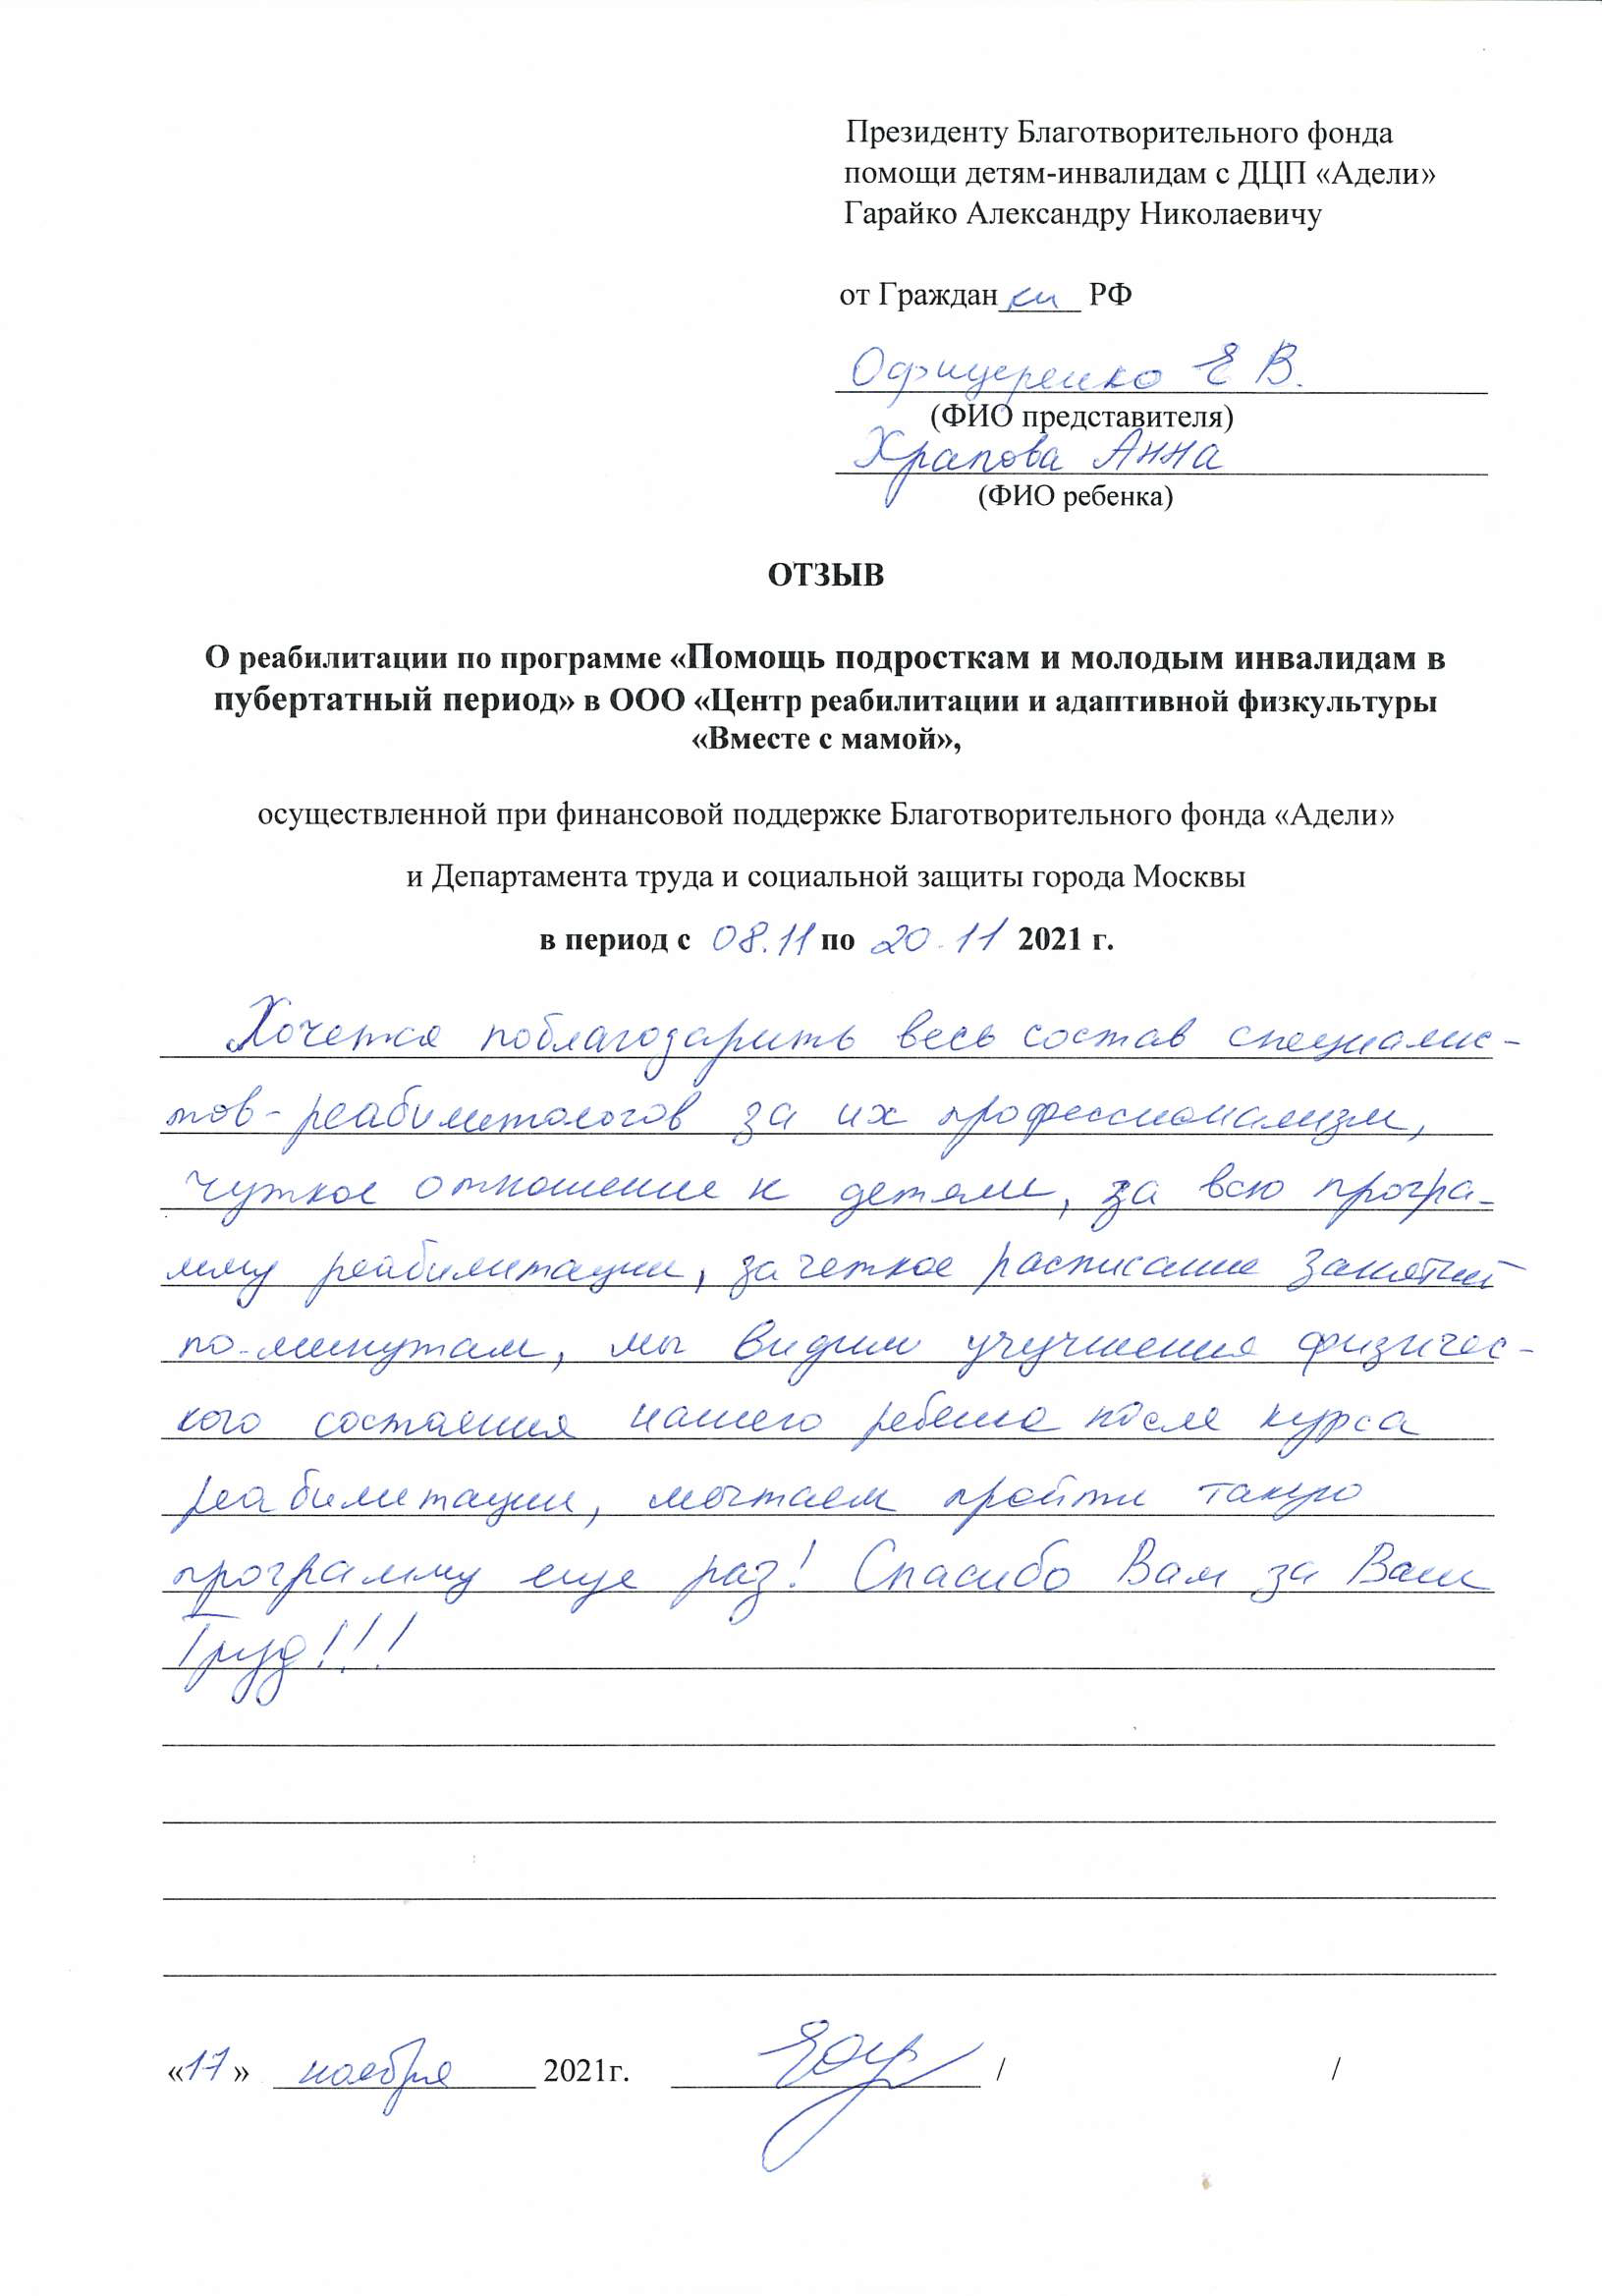 Президенту Благотворительного фонда
помощи детям-инвалидам с ДЦП «Адели»
Гарайко Александру Николаевичу
от Гражданки РФ
Офицеренко Е В.
(ФИО представителя)
Храпова Анна
(ФИО ребенка)
ОТЗЫВ
О реабилитации по программе «Помощь подросткам и молодым инвалидам в
пубертатный период» в ООО «Центр реабилитации и адаптивной физкультуры
«Вместе с мамой»,
осуществленной при финансовой поддержке Благотворительного фонда «Адели»
и Департамента труда и социальной защиты города Москвы
в период с 08.11 по 20.11 2021 г.
Хочется поблагодарить весь состав специалис-
тов-реабилитологов за их профессионализм,
чуткое отношение к детям, за всю програ-
мму реабилитации, за четкое расписание занятий
по-минутам, мы видим улучшения физичес-
кого состояния нашего ребенка после курса
реабилитации, мечтаем пройти такую
программу еще раз! Спасибо Вам за Ваш
Труд!!!
«17» ноября 2021г. / /